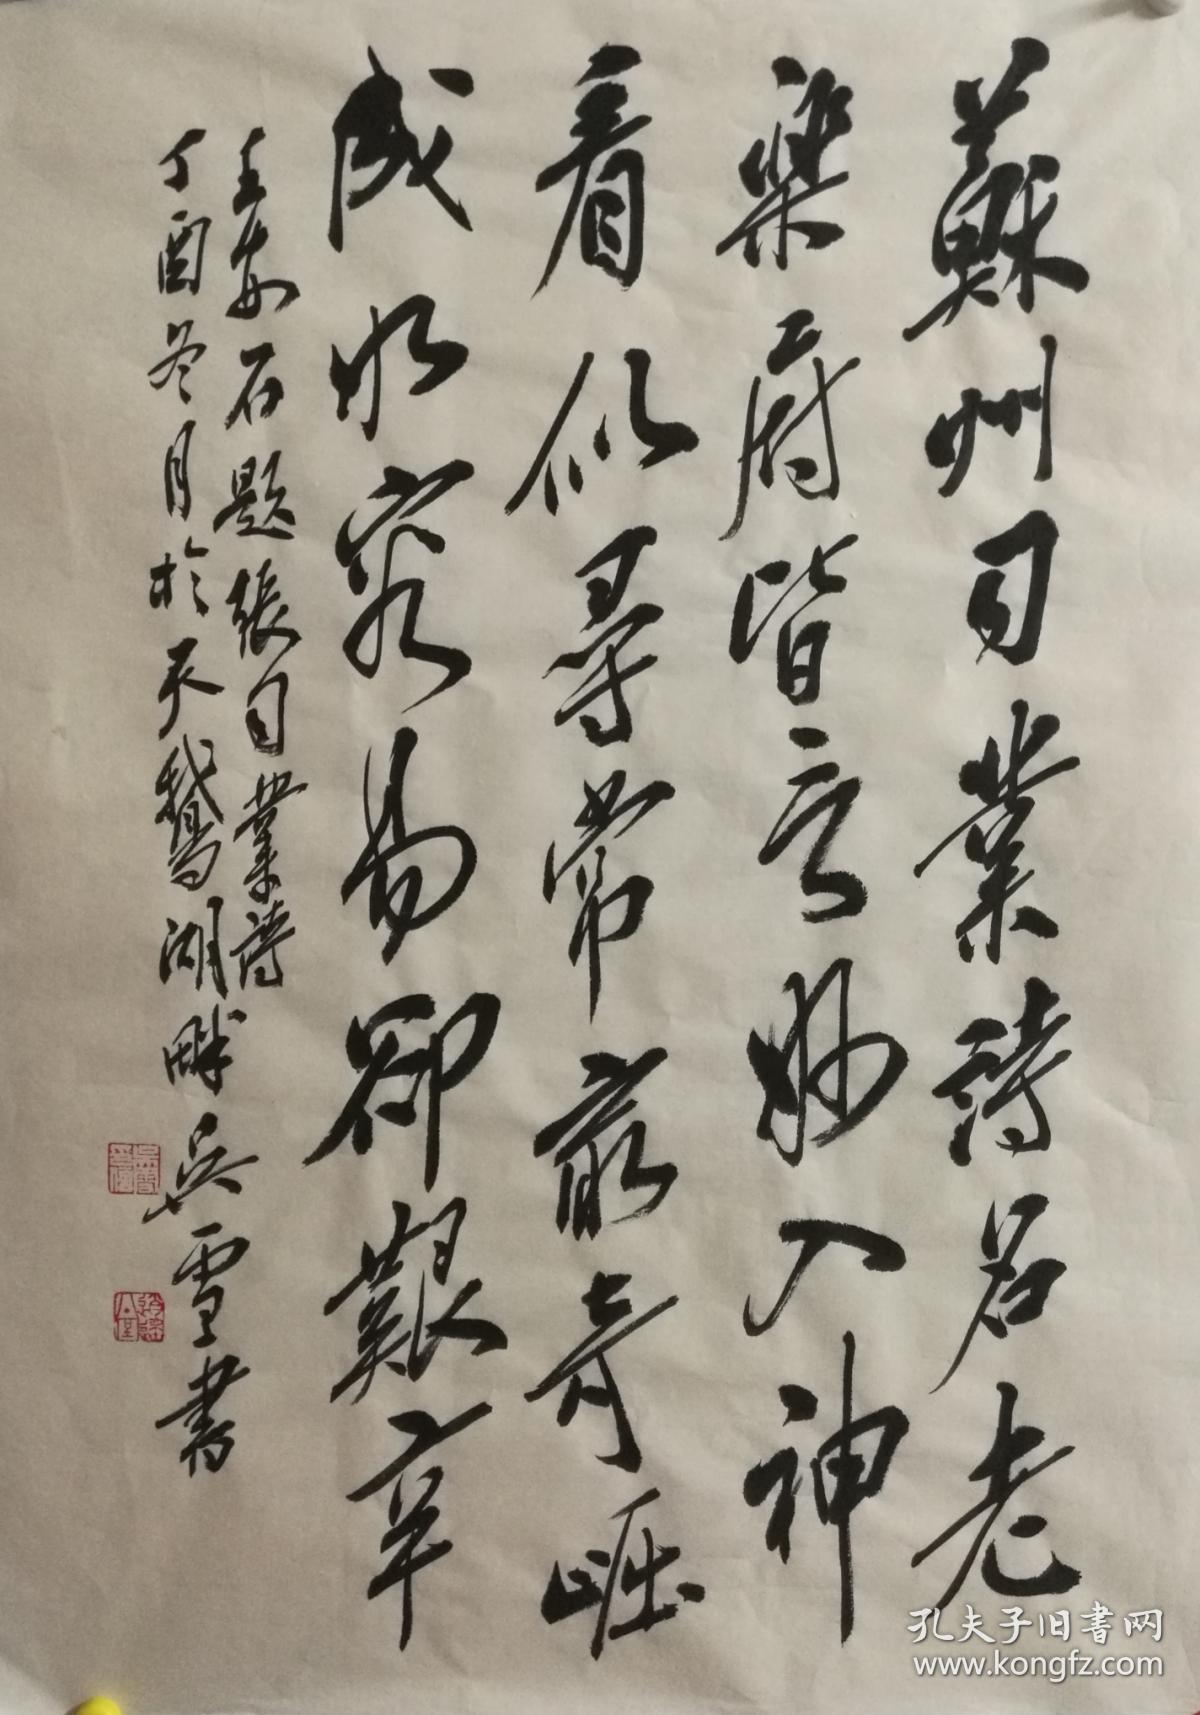 蘇州司業詩名老
樂府皆言妙入神
看似尋常最奇崛
成如容易卻艱辛
王安石題張司業詩
丁酉冬月於天鵝湖畔吳雪書
孔夫子旧书网
www.kongfz.com